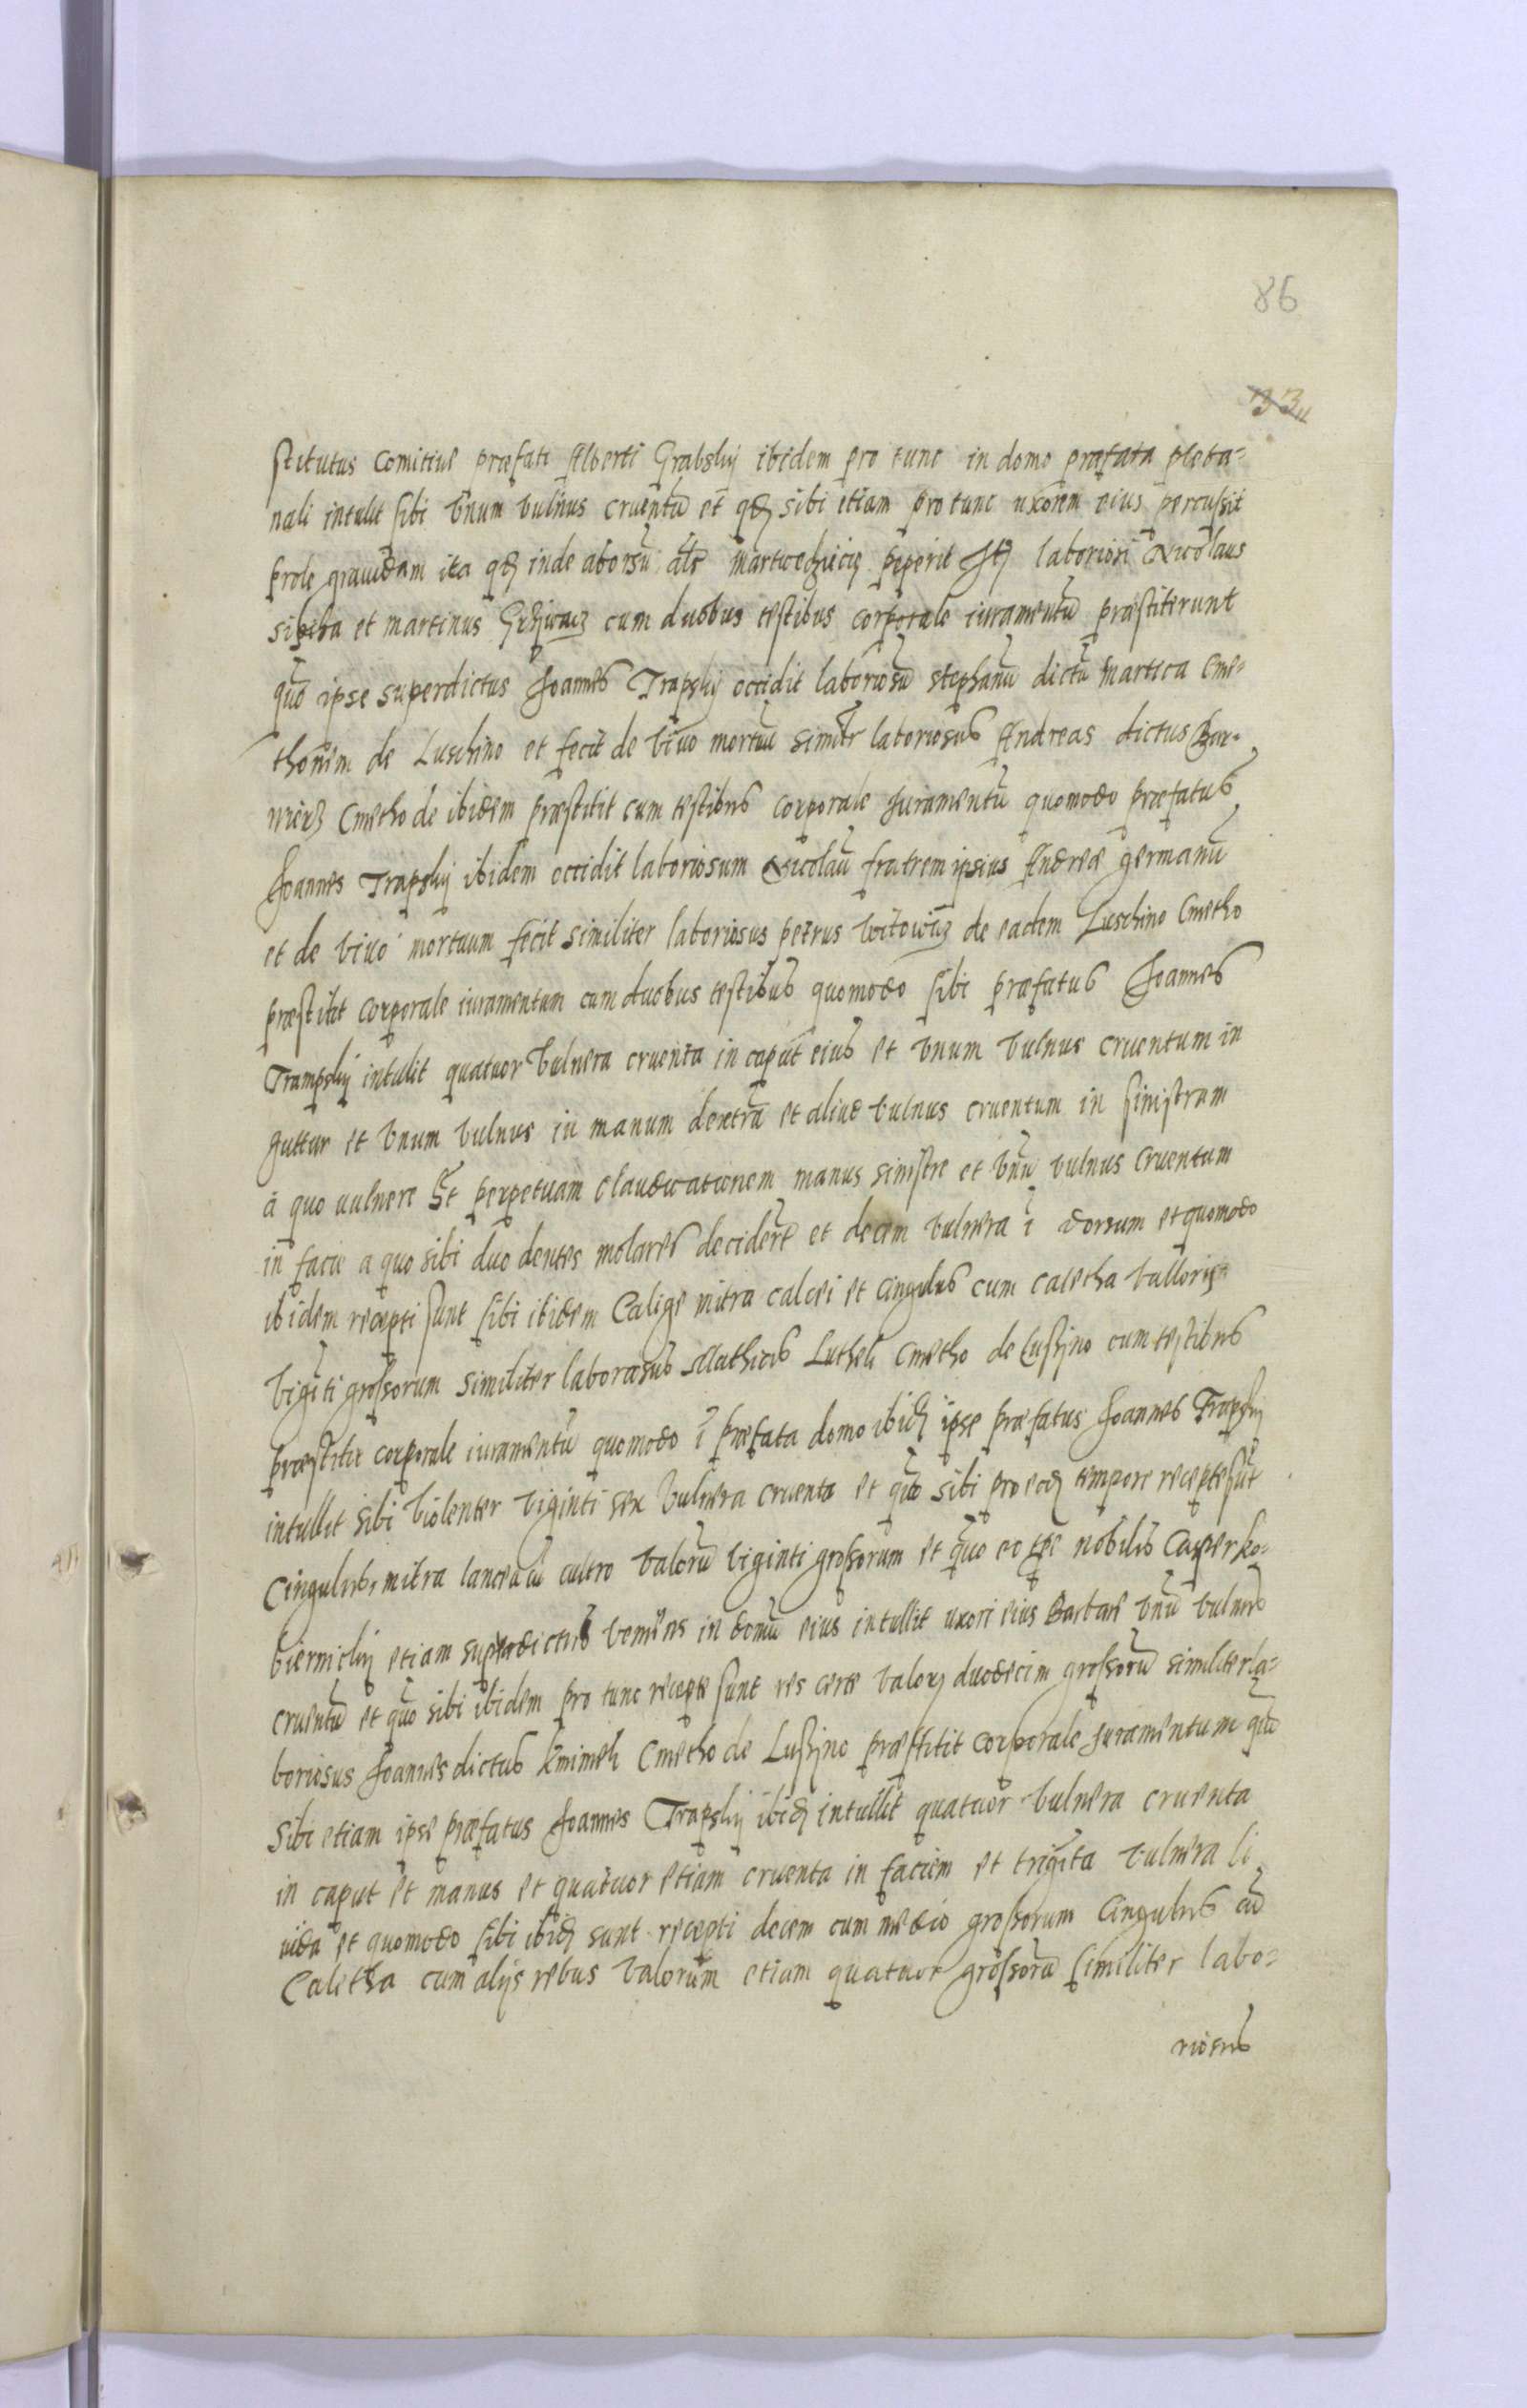 86
33
stitutus comitive præfati Alberti Grabskij ibidem pro tunc in domo præfata pleba=
nali intulit sibi vnum vulnus cruentū et qđ sibi etiam pro tunc uxorem eius percussit
prole grauidam ita qđ inde aborsū als peperit laboriosi Nicolaus
et Martinus cum duobus testibus corporale iuramentū præstiterunt
quō ipse superdictus Joannes Trapskij occidit laboriosū stephanū dictū Martica Cme=
thonem de Luschino et fecit de viuo mortuū similr laboriosus Andreas dictus Bar=
wierz Cmetho de ibidem præstitit cum testibus corporale Juramentū quomodo præfatus
Joannes Trapskij ibidem occidit laboriosum Nicolaū fratrem ipsius Andreæ germanū
et de viuo mortuum fecit similiter laboriosus petrus witowicz de eadem Luschino Cmetho
præstitit corporale iuramentum cum duobus testibus quomodo sibi præfatus Joannes
Trampskij intulit quatuor vulnera cruenta in caput eius et vnum vulnus cruentum in
guttur et vnum vulnus in manum dextrā et aliud vulnus cruentum in sinistram
a quo uulnere St perpetuam claudicationem manus sinistre et vnū vulnus cruentum
in facie a quo sibi duo dentes molares deciderūt et decem vulnera ī dorsum et quomodo
ibidem recepti sunt sibi ibidem Calige mitra calcei et cingulus cum caletha valloris
vigīti grossorum similiter laboriosus Mathias Luthek Cmetho de Lusyno cum testibus
præstitit corporale iuramentū quomodo ī præfata domo ibidē ipse præfatus Joannes Trapskij
intullit sibi violenter viginti sex vulnera cruenta et quō sibi pro eodē tempore recepte sūt
Cingulus, mitra lancea cū cultro valorū viginti grossorum et quō eo tpe nobilis Casper ko=
biernickij etiam superdictus veniens in domū eius intullit uxori eius Barbare vnū vulnus
cruentū et quō sibi ibidem pro tunc recepte sunt res certe valorꝫ duodecim grossorū similiter la=
boriosus Joannes dictus kmimek Cmetho de Lusyno præstitit corporale Juramentum quō
sibi etiam ipse præfatus Joannes Trapskij ibidē intullit quatuor vulnera cruenta
in caput et manus et quatuor etiam cruenta in faciem et trigīta vulnera li
uida et quomodo sibi ibidē sunt recepti decem cum medio grossorum Cingulus cū
Caletha cum alijs rebus valorum etiam quatuor grossorū similiter labo=
riosus